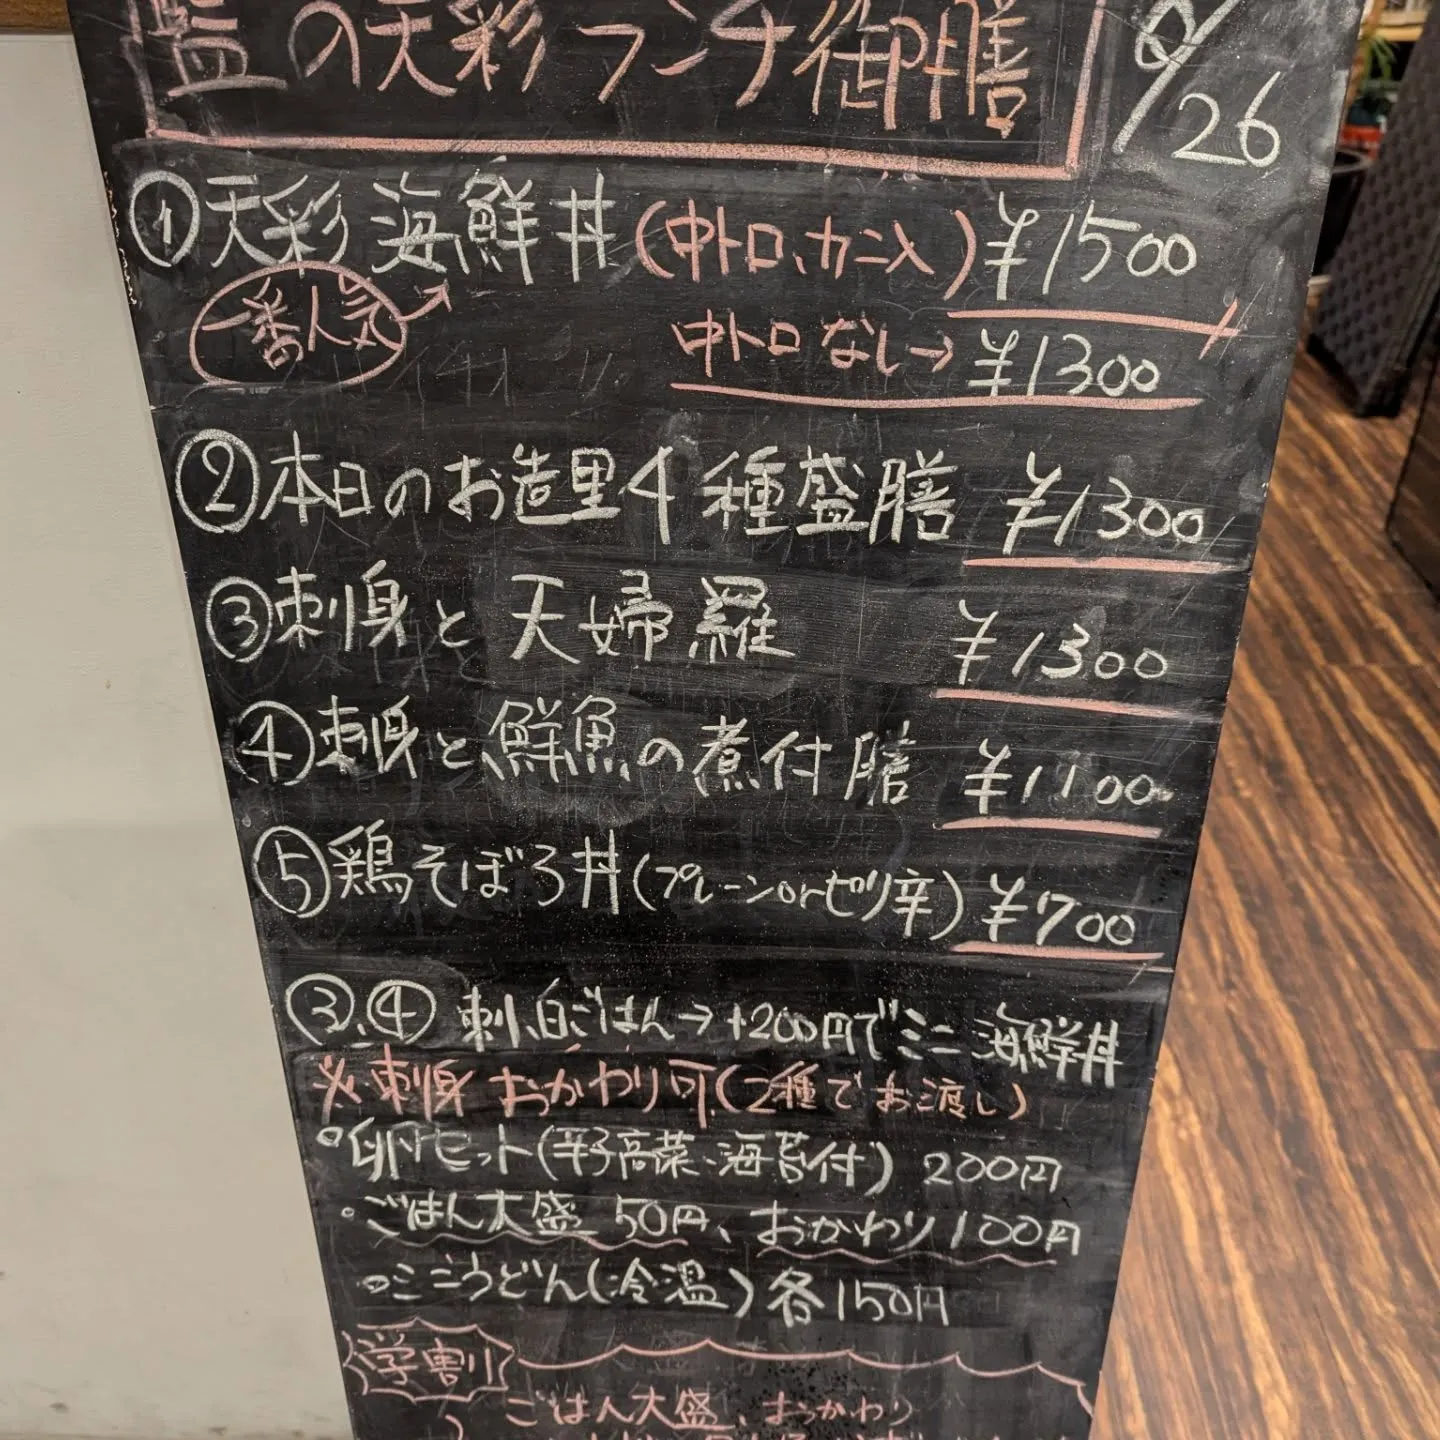 藍の天彩ランチ御膳
9/26
①天彩海鮮丼(中トロ、カニ入)¥1500
一番人気→
中トロなし→¥1300
②本日のお造里4種盛膳 ¥1300
③刺身と天婦羅 ¥1300
④刺身と鮮魚の煮付膳 ¥1100
⑤鶏そぼろ丼(プレーンorピリ辛)¥700
③、④ 刺、白ごはん→+200円でミニ海鮮丼
※刺身おかわり可(2種でお渡し)
○卵セット(辛子高菜、海苔付) 200円
○ごはん大盛 50円、おかわり100円
○ミニうどん(冷温)各150円
学割
ごはん大盛、おかわり